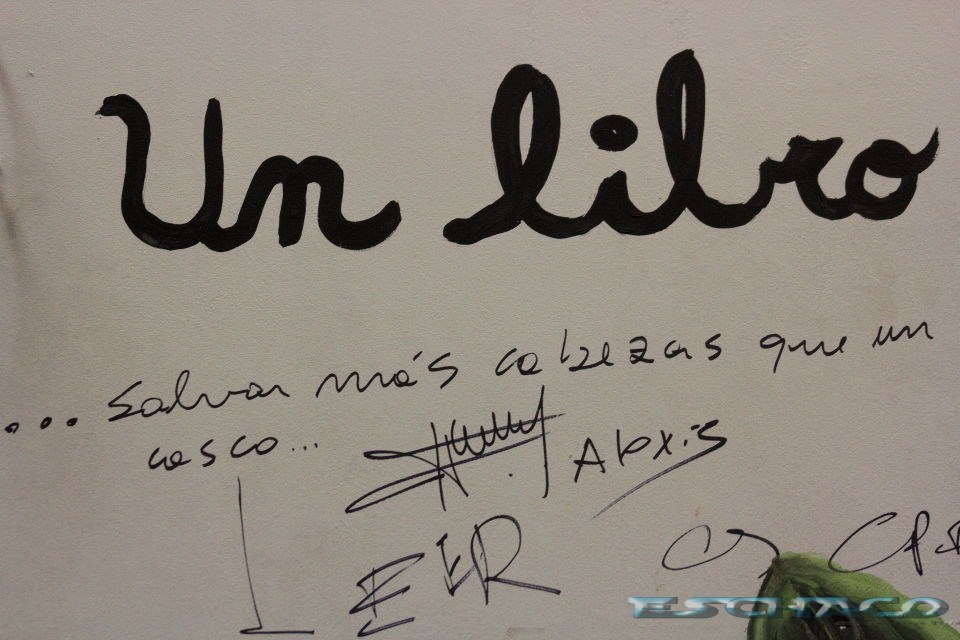 Un libro
... salvar más cabezas que un
casco...
Alexis
LEER
ESCHACO